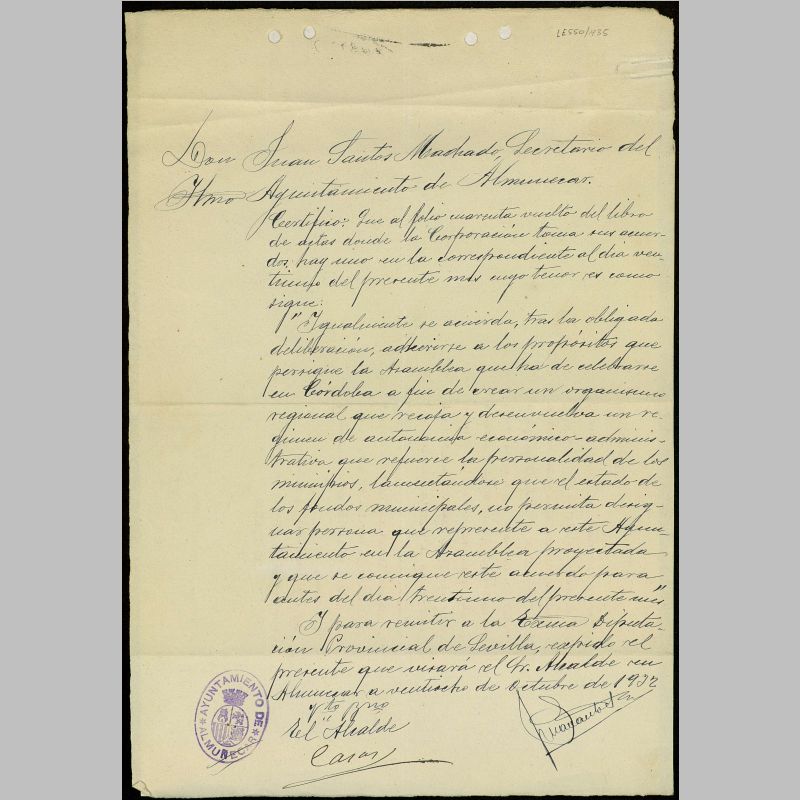 LE550/435
Don Juan Santos Machado, Secretario del
Ilmo Ayuntamiento de Almuñecar.
Certifico: Que al folio cuarenta vuelto del libro
de actas donde la Corporación toma sus acuer-
dos, hay uno en la correspondiente al dia vein-
tiuno del presente mes cuyo tenor es como
sigue:
"Igualmente se acuerda, tras la obligada
deliberación, adherirse a los propósitos que
persigue la Asamblea que ha de celebrarse
en Córdoba a fin de crear un organismo
regional que recoja y desenvuelva un re-
gimen de autonomia económico-adminis-
trativa que refuerce la personalidad de los
municipios, lamentándose que el estado de
los fondos municipales, no permita desig-
nar persona que represente a este Ayun-
tamiento en la Asamblea proyectada
y que se comunique este acuerdo para
antes del dia treintiuno del presente mes"
Y para remitir a la Excma Diputa-
ción Provincial de Sevilla, expido el
presente que visará el Sr. Alcalde en
Almuñecar a veintiocho de Octubre de 1932
Vto Bno
El Alcalde
Casas
AYUNTAMIENTO DE
ALMUÑECAR